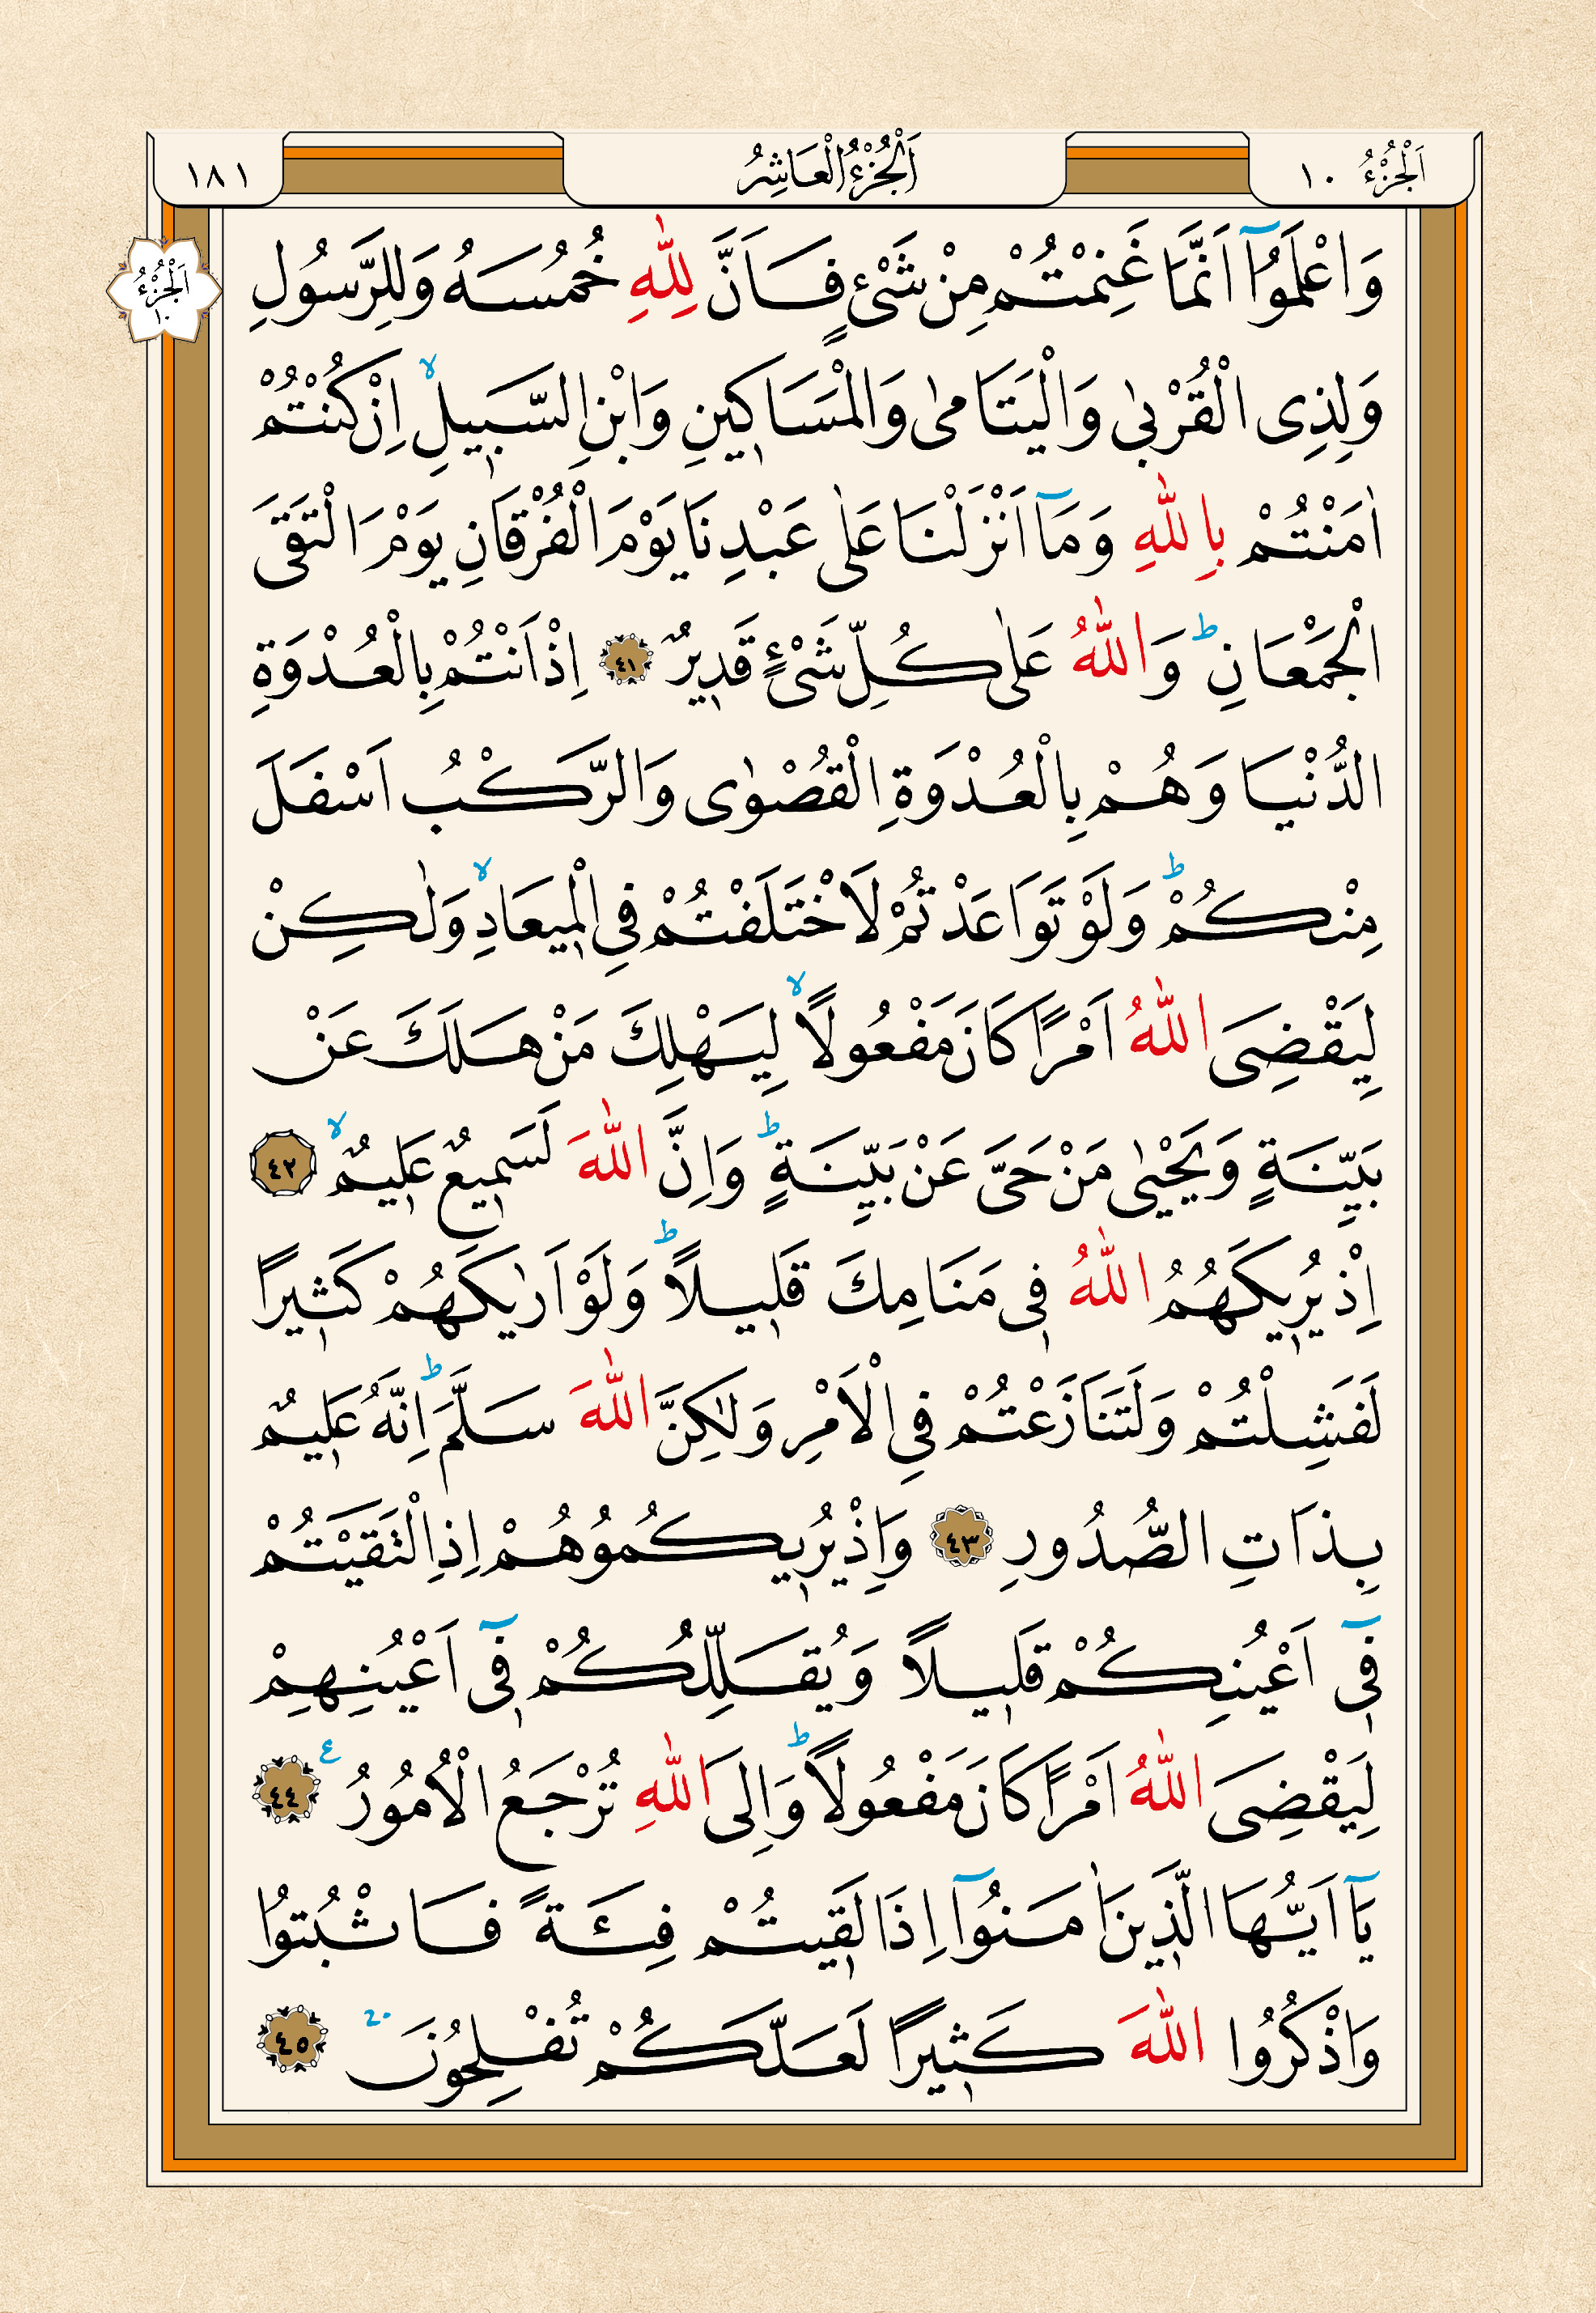 اَلْجُزْءُ ١٠
اَلْجُزْءُ الْعَاشِرُ
١٨١
اَلْجُزْءُ
١٠
وَاعْلَمُوٓا اَنَّمَا غَنِمْتُمْ مِنْ شَىْءٍ فَاَنَّ لِلّٰهِ خُمُسَهُ وَلِلرَّسُولِ
وَلِذِى الْقُرْبٰى وَالْيَتَامٰى وَالْمَسَاكٖينِ وَابْنِ السَّبٖيلِۙ اِنْ كُنْتُمْ
اٰمَنْتُمْ بِاللّٰهِ وَمَٓا اَنْزَلْنَا عَلٰى عَبْدِنَا يَوْمَ الْفُرْقَانِ يَوْمَ الْتَقَى
الْجَمْعَانِؕ وَاللّٰهُ عَلٰى كُلِّ شَىْءٍ قَدٖيرٌ ﴿٤١﴾ اِذْ اَنْتُمْ بِالْعُدْوَةِ
الدُّنْيَا وَهُمْ بِالْعُدْوَةِ الْقُصْوٰى وَالرَّكْبُ اَسْفَلَ
مِنْكُمْؕ وَلَوْ تَوَاعَدْتُمْ لَاخْتَلَفْتُمْ فِى الْمٖيعَادِۙ وَلٰكِنْ
لِيَقْضِىَ اللّٰهُ اَمْرًا كَانَ مَفْعُولًاۙ لِيَهْلِكَ مَنْ هَلَكَ عَنْ
بَيِّنَةٍ وَيَحْيٰى مَنْ حَىَّ عَنْ بَيِّنَةٍؕ وَاِنَّ اللّٰهَ لَسَمٖيعٌ عَلٖيمٌۙ ﴿٤٢﴾
اِذْ يُرٖيكَهُمُ اللّٰهُ فٖى مَنَامِكَ قَلٖيلًاؕ وَلَوْ اَرٰيكَهُمْ كَثٖيرًا
لَفَشِلْتُمْ وَلَتَنَازَعْتُمْ فِى الْاَمْرِ وَلٰكِنَّ اللّٰهَ سَلَّمَؕ اِنَّهُ عَلٖيمٌ
بِذَاتِ الصُّدُورِ ﴿٤٣﴾ وَاِذْ يُرٖيكُمُوهُمْ اِذِ الْتَقَيْتُمْ
فٖٓى اَعْيُنِكُمْ قَلٖيلًا وَيُقَلِّلُكُمْ فٖٓى اَعْيُنِهِمْ
لِيَقْضِىَ اللّٰهُ اَمْرًا كَانَ مَفْعُولًاؕ وَاِلَى اللّٰهِ تُرْجَعُ الْاُمُورُ ع ﴿٤٤﴾
يَٓا اَيُّهَا الَّذٖينَ اٰمَنُٓوا اِذَا لَقٖيتُمْ فِئَةً فَاثْبُتُوا
وَاذْكُرُوا اللّٰهَ كَثٖيرًا لَعَلَّكُمْ تُفْلِحُونَۚ ﴿٤٥﴾